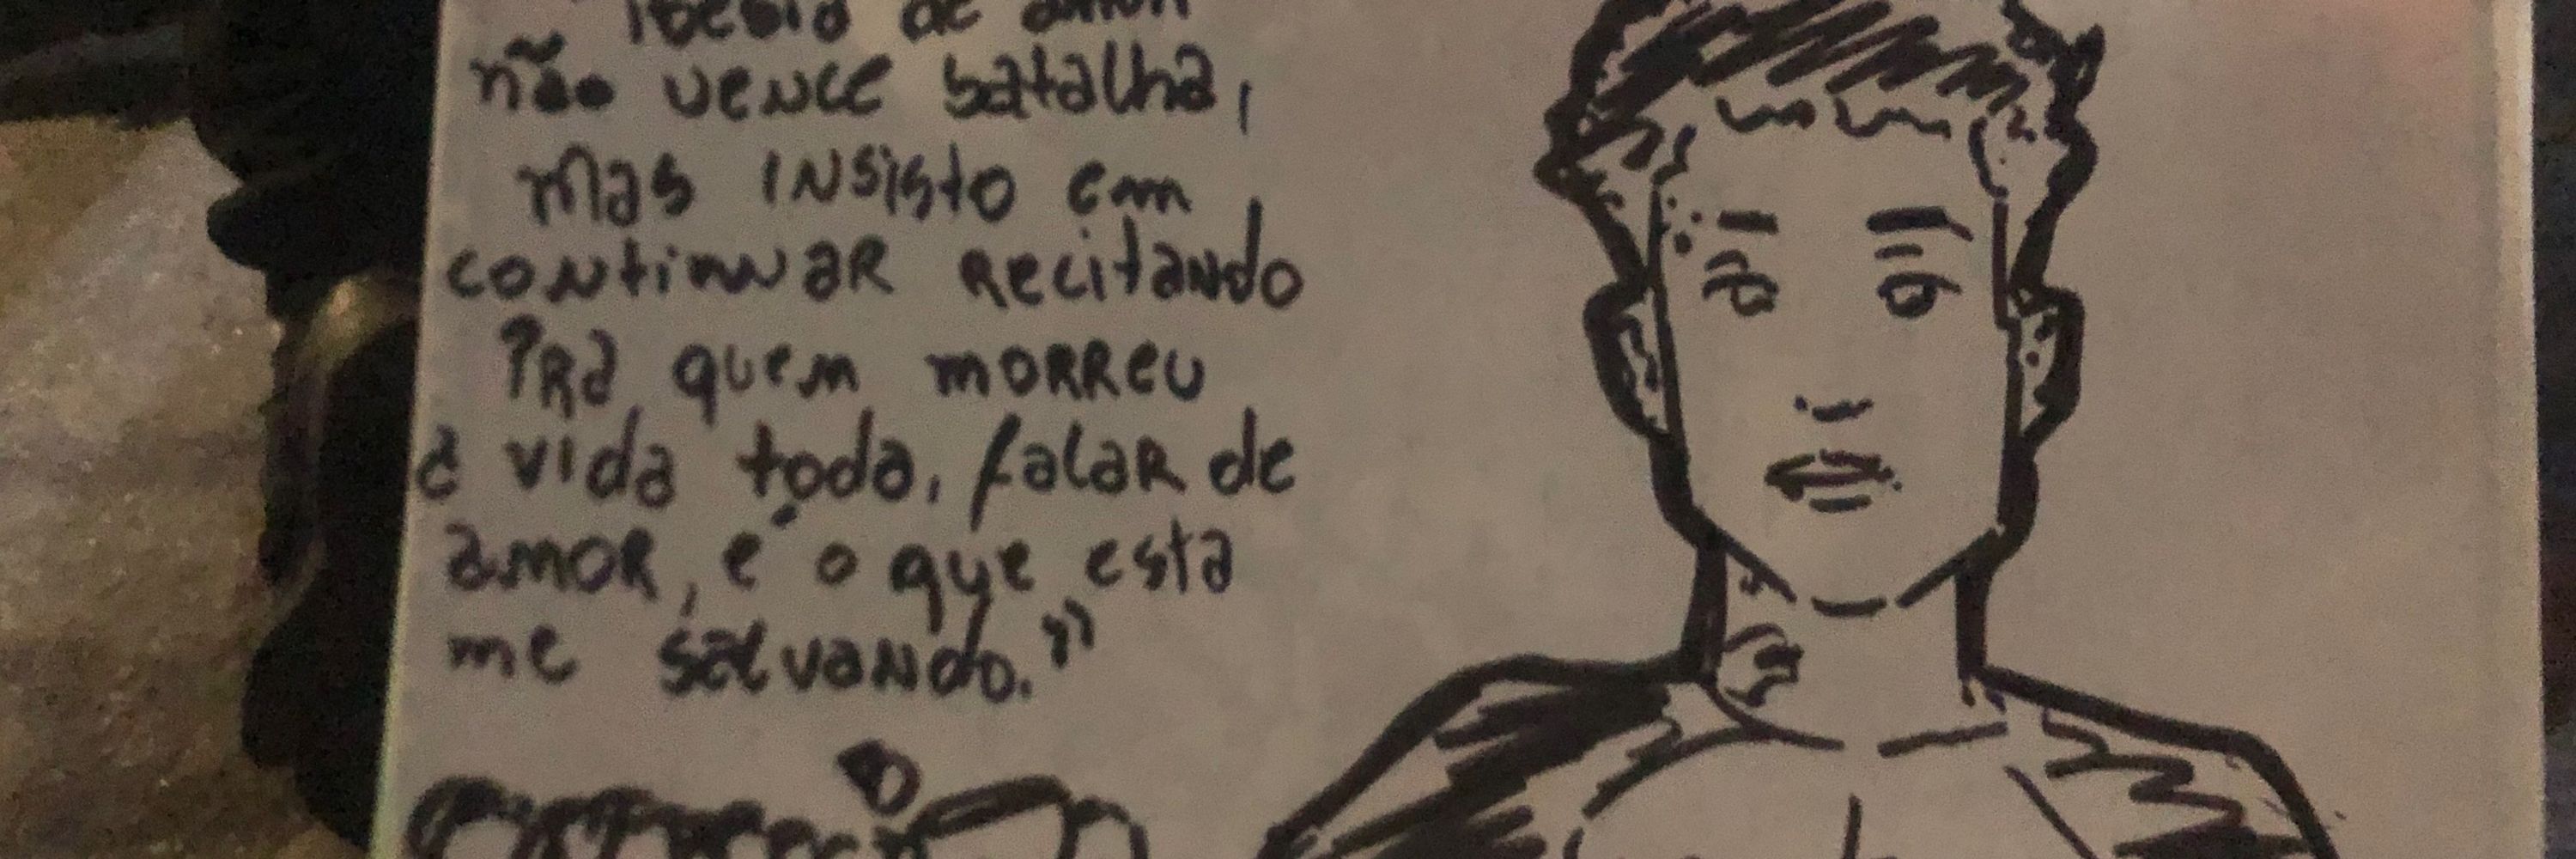 de amor
não vence batalha,
mas insisto em
continuar recitando
Pra quem morreu
a vida toda, falar de
amor, é o que esta
me salvando."